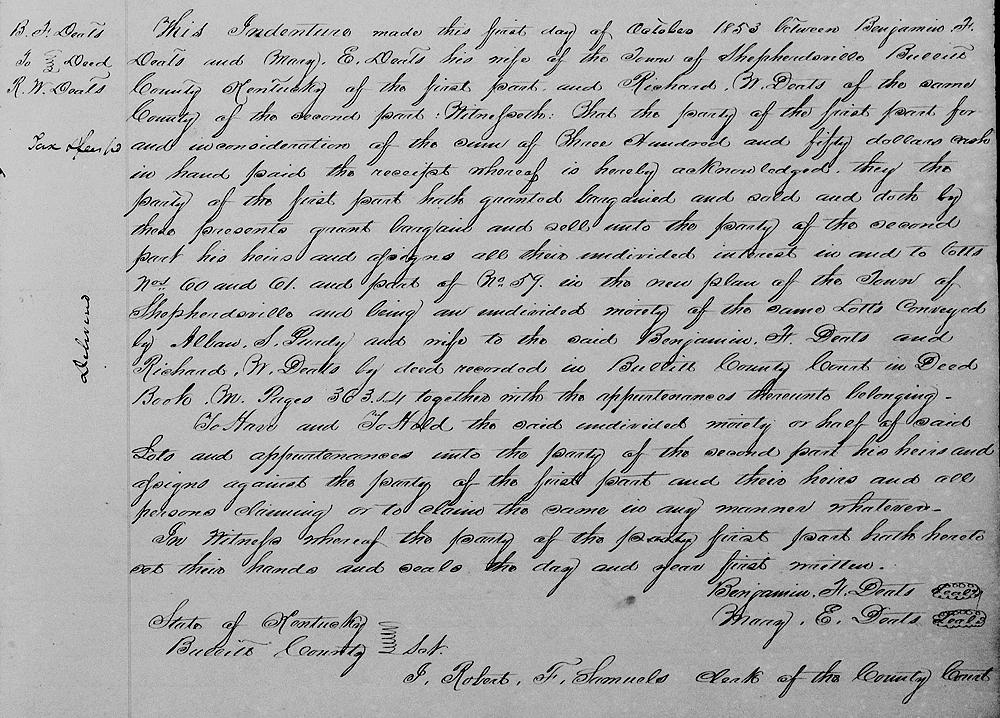 B. F. Deats
To Deed
R. W. Deats
Delivered
This Indenture made this first day of October 1853 between Benjamin F.
Deats and Mary. E. Deats his wife of the Town of Shepherdsville Bullitt
County Kentucky of the first part. and Richard. W. Deats of the same
County of the second part: Witnesseth: That the party of the first part for
and inconsideration of the sum of Three Hundred and fifty dollars cash
in hand paid the receipt whereof is hereby acknowledged. they the
party of the first part hath granted bargained and sold and doth by
these presents grant bargain and sell unto the party of the second
part his heirs and assigns all their undivided interest in and to Lotts
Nos. 60 and 61. and part of No. 59. in the new plan of the Town of
Shepherdsville and being an undivided moiety of the same Lotts Conveyed
by Alban. S. Purdy and wife to the said Benjamin, F. Deats and
Richard, W. Deats by deed recorded in Bullitt County Court in Deed
Book. M. Pages 363.&4 together with the appurtenances thereunto belonging-
To Have and To Hold the said undivided moiety or half of said
Lots and appurtenances unto the party of the second part his heirs and
assigns against the party of the first part and their heirs and all
persons claiming or to claim the same in any manner whatever-
In Witness whereof the party of the party first part hath hereto
set their hands and seals the day and year first written.
Benjamin. F. Deats Seal
Mary. E. Deats Seal
State of Kentucky
Bullitt County Sct.
I, Robert. F. Samuels clerk of the County Court